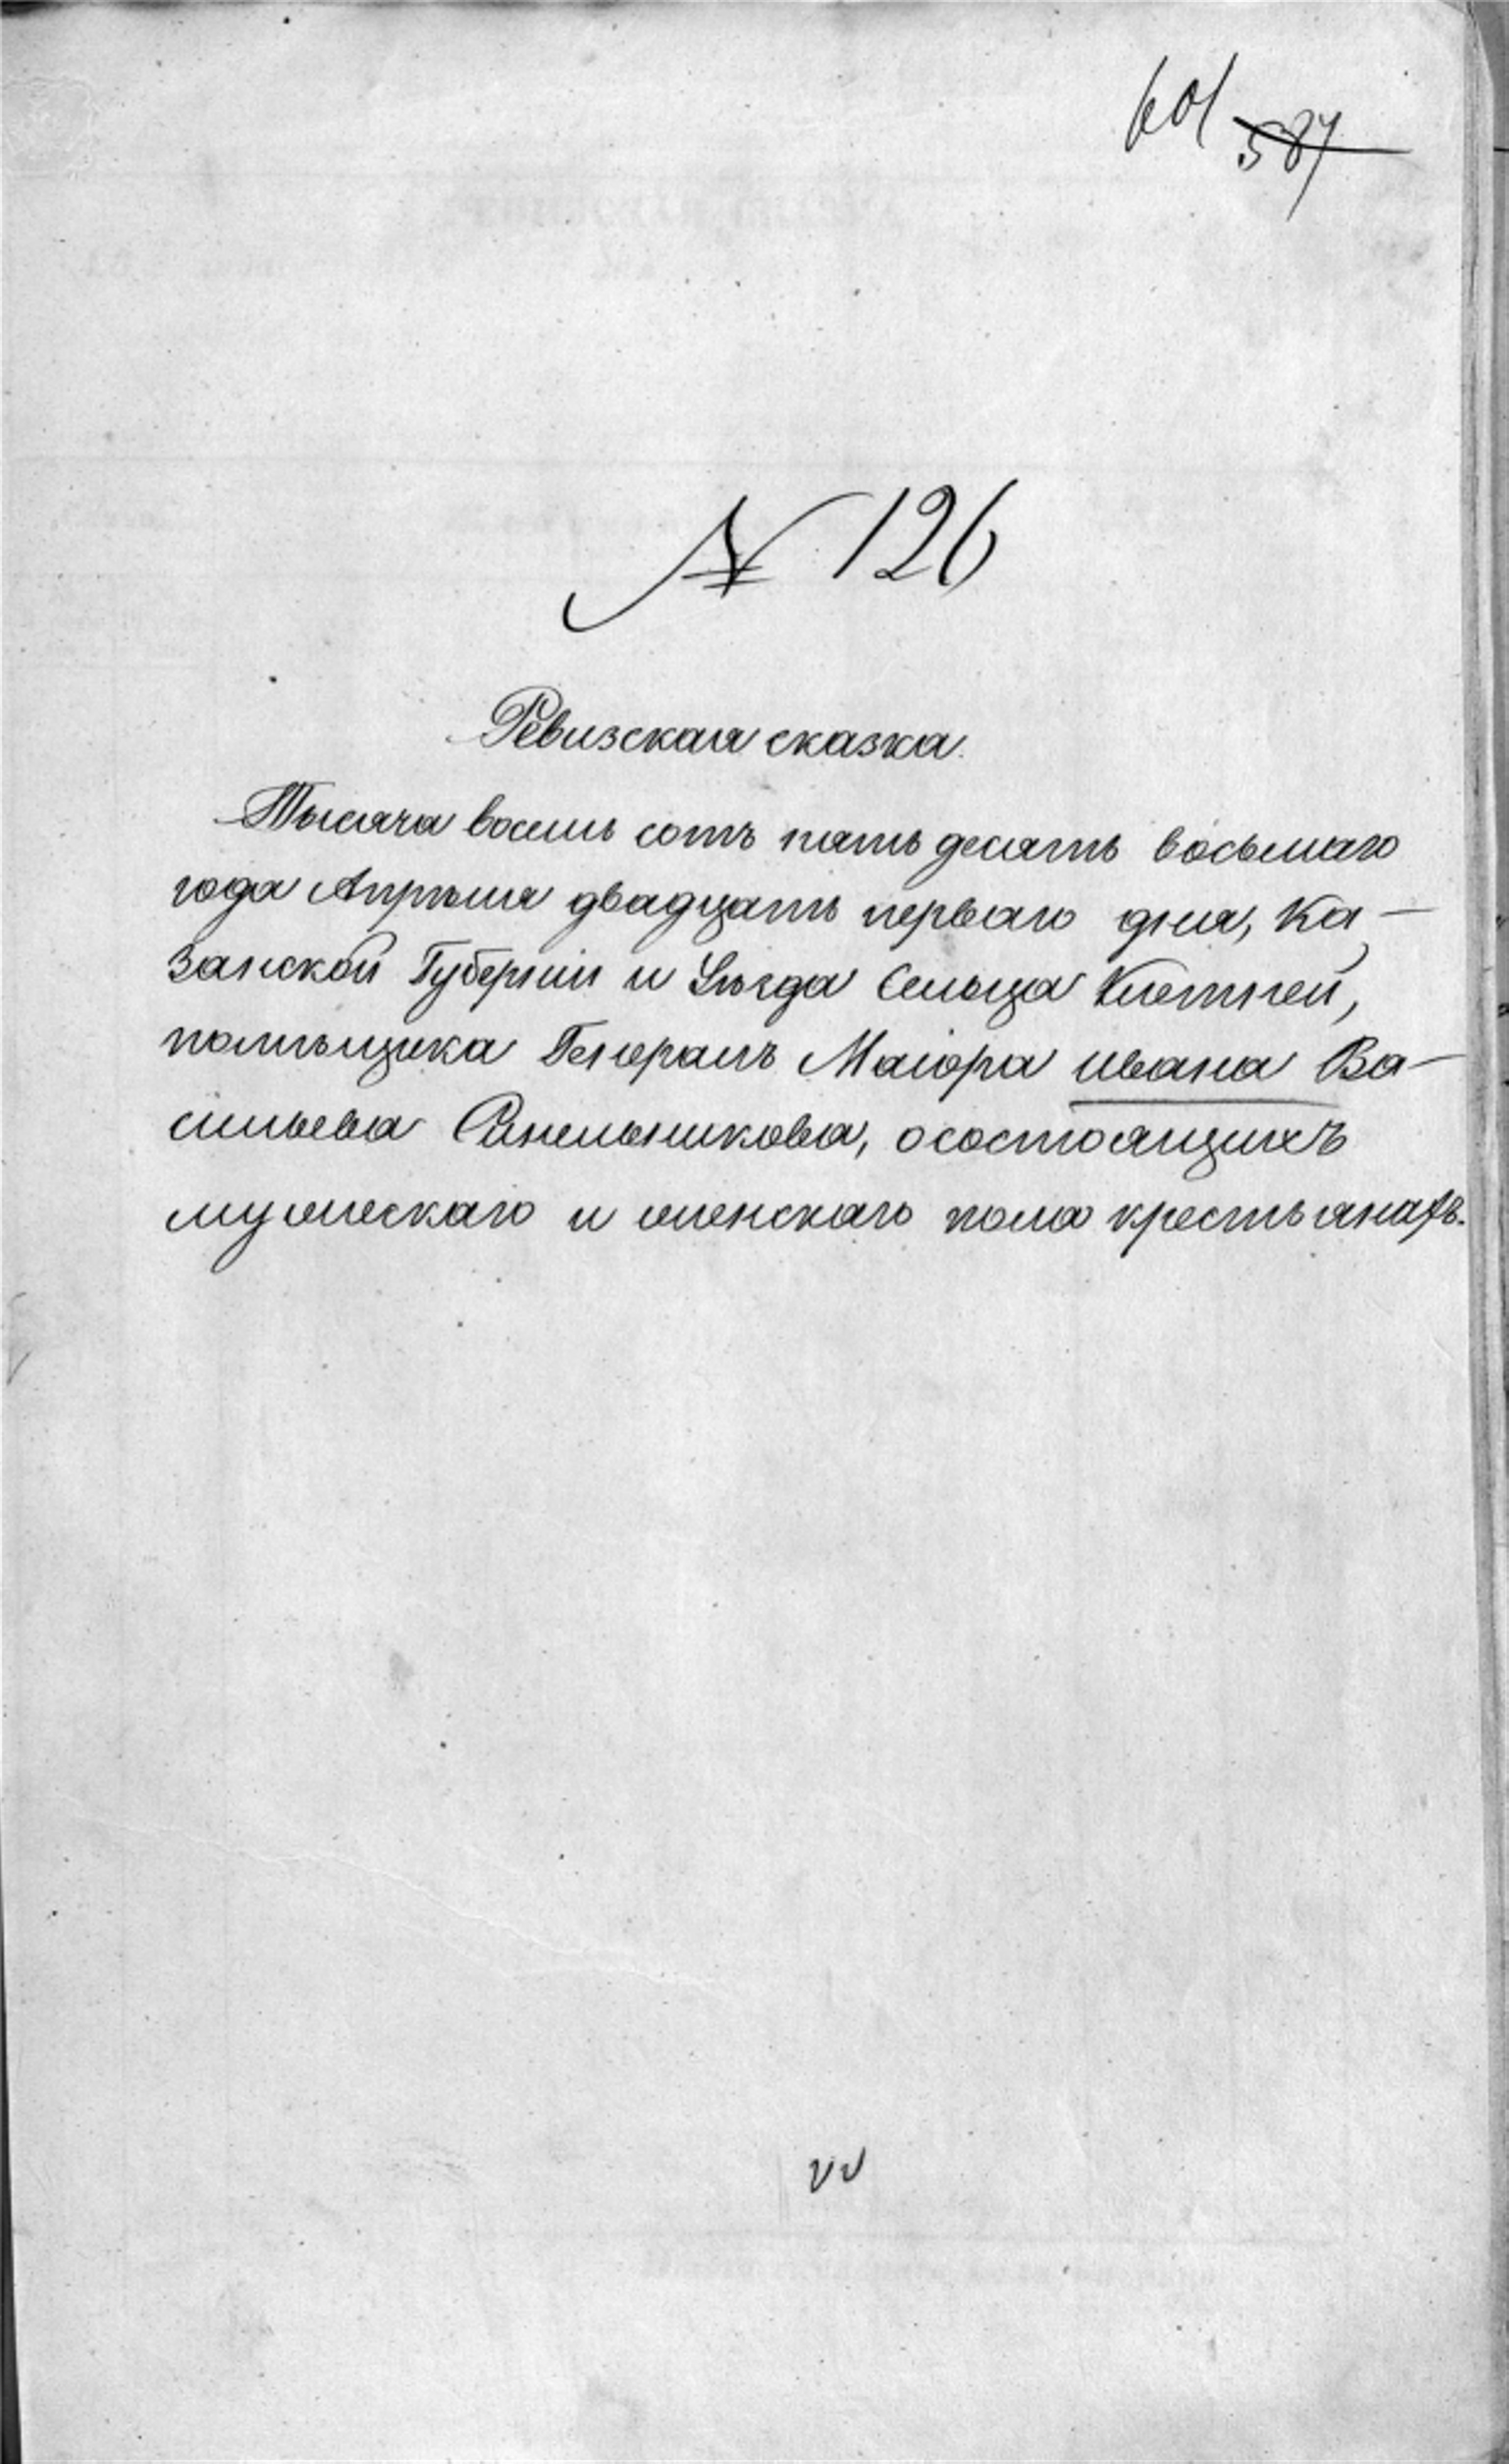 601 587
№ 126
Ревизская сказка.
Тысяча восемь сотъ пять десятъ восьмаго
года Апрѣля двадцать перваго дня, Ка-
занской Губерніи и Уѣзда Сельца Клетней,
помѣщика Генералъ Маіора Ивана Ва-
сильева Синельникова, о состоящихъ
мужескаго и женскаго пола крестьянахъ.